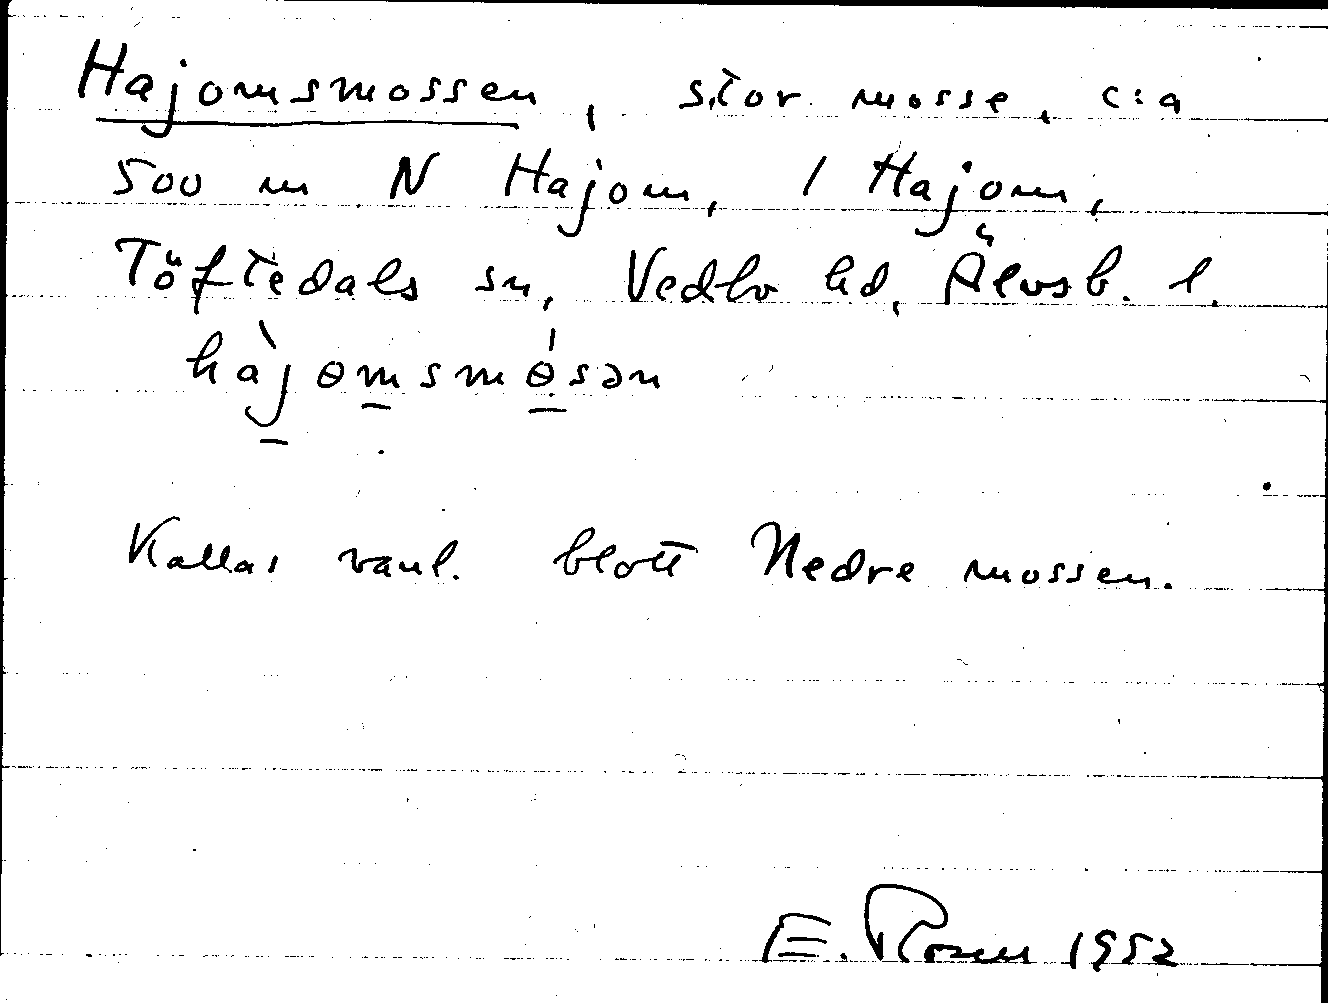 Hajomsmossen, stor mosse, c:a
500 m N Hajom, 1 Hajom,
Töftedals sn, Vedbo hd, Älvsb. l.
hàjɵmsmɵ́sən
Kallas vanl. blott Nedre mossen.
E. Rosen 1952